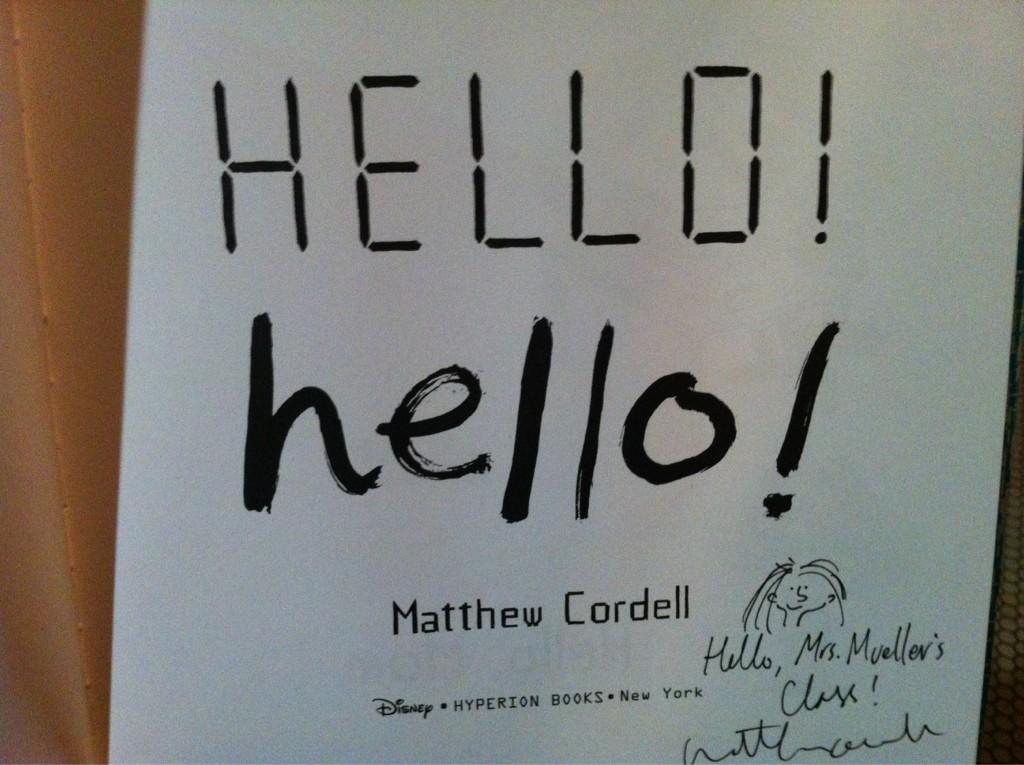 HELLO!
hello!
Matthew Cordell
Hello, Mrs. Mueller's
Class!
Disney • HYPERION BOOKS • New York